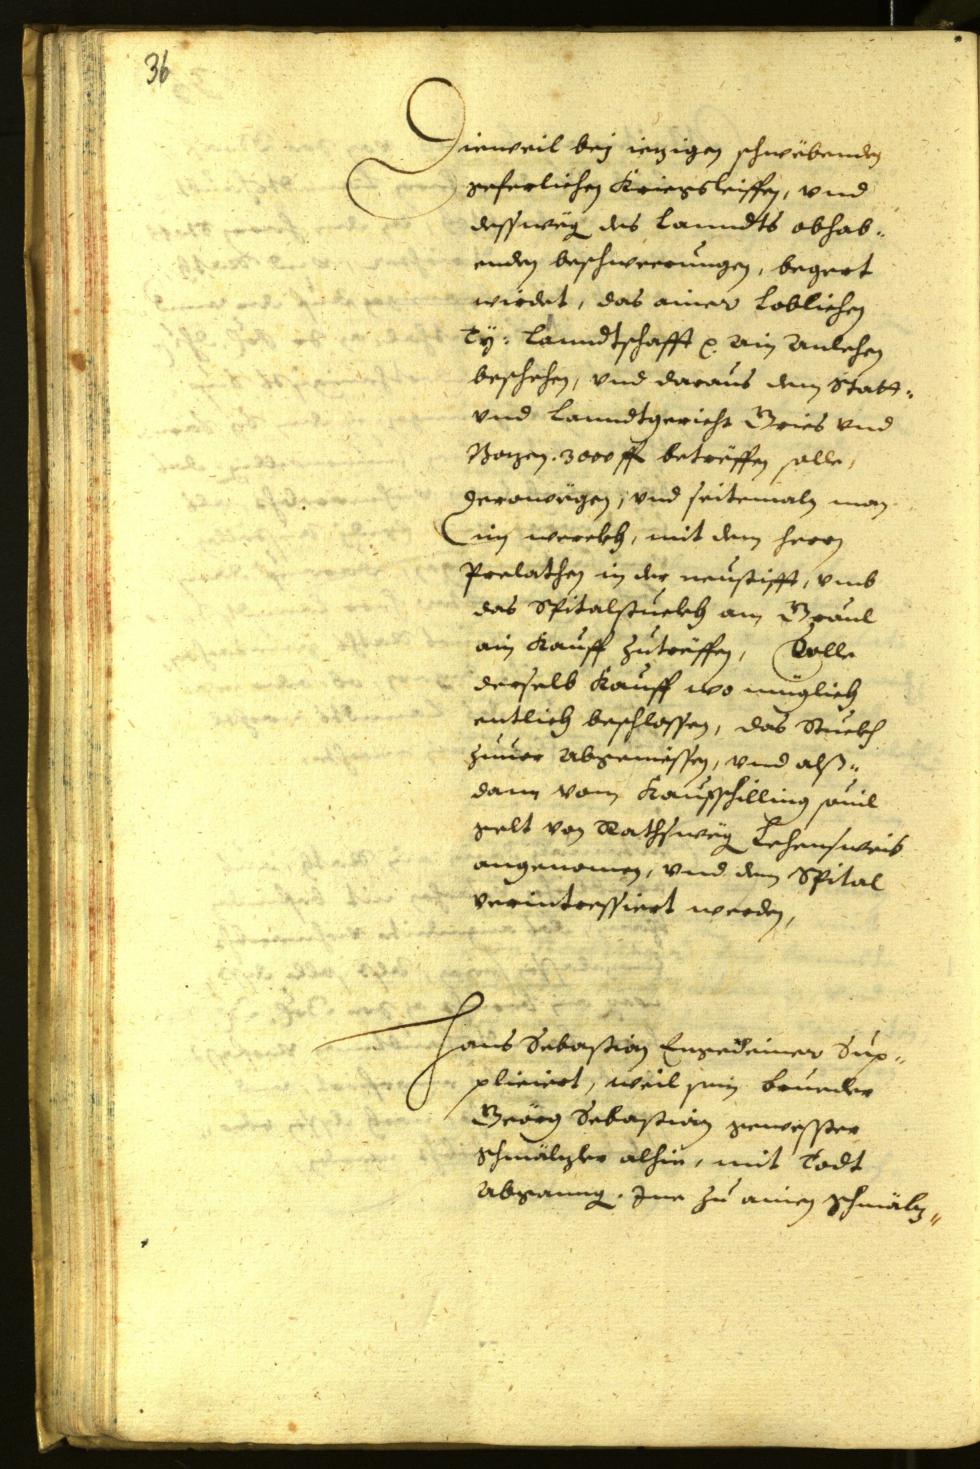 36
Dieweil bej ieczigen schwebenden
geferlichen Kriegsleiffen, vnd
desswëg des Lanndts obhab„
enden beschwerungen, begert
wirdet, das ainer Loblichen
Ty: Lanndtschafft p. ain Anlehen
beschehen, vnd daraus dem Statt„
vnd Lanndtgericht Gries vnd
Bozen .3000 fl betreffen solle,
derowëgen, vnd seitemaln man
im werckh, mit dem herrn
Prelathen in der neustifft, vmb
das Spitalstuckh am
ain Kauff zutreffen, Solle
derselb Kauff wo müglich
entlich beschlossen, das Stuckh
zuuor Abgemëssen, vnd alß„
dann vom Kaufschilling souil
gelt von Rathswëg Lehensweis
angenomen, vnd dem Spital
verintressiert werden,
Hans Sebastian Sup„
pliciert, weil sein brueder
Geörg Sebastian gewesster
schmälzler alhie, mit Todt
Abganng. Ine zu ainen schmälz„